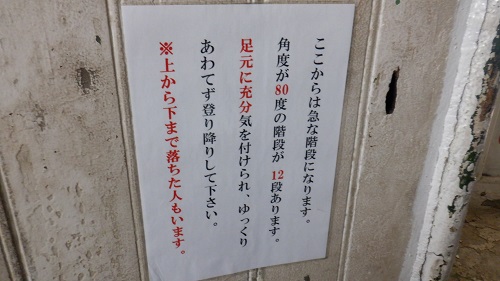 ここからは急な階段になります。
角度が80度の階段が 12段あります。
足元に充分気を付けられ、ゆっくり
あわてず登り降りして下さい。
※上から下まで落ちた人もいます。